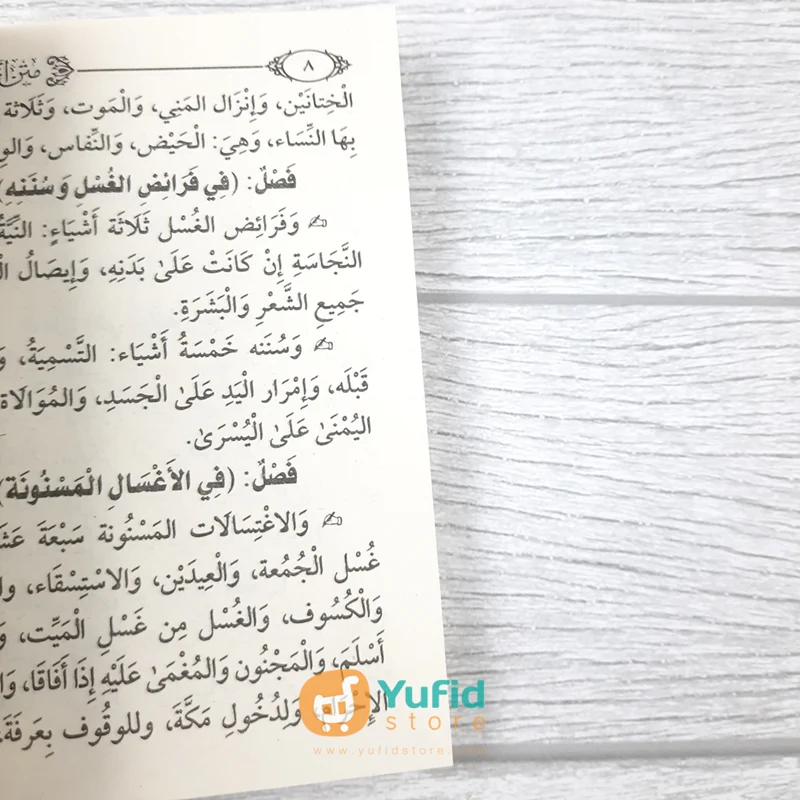 ٨
متن
الْخِتانَيْن، وَإِنْزَال المَنِي، وَالْمَوت، وَثَلَاثة
بِهَا النِّسَاء، وَهِيَ: الْحَيْض، وَالنِّفاس،
فَصْلٌ: (فِي فَرَائِضِ الغُسْلِ وَسُنَنِهِ)
وَفَرَائِض الغُسْل ثَلَاثَة أَشْيَاءٍ: النيَّةُ
النَّجَاسَةِ إِنْ كَانَتْ عَلَىٰ بَدَنِهِ، وَإِيصَالُ
جَمِيعِ الشَّعْرِ وَالْبَشَرَةِ.
وَسُنَنه خَمْسَةُ أَشْيَاء: التَّسْمِيَةُ،
قَبْلَه، وَإِمْرَار الْيَدِ عَلَىٰ الْجَسَدِ، وَالمُوَالَاة
اليُمْنَىٰ عَلَىٰ الْيُسْرَىٰ.
فَصْلٌ: (فِي الأَغْسَالِ الْمَسْنُونَة)
وَالاغْتِسَالَات المَسْنُونة سَبْعَةَ
غُسْل الْجُمُعة، وَالْعِيدَيْن، وَالاسْتِسْقَاء،
وَالْكُسُوف، وَالغُسْل مِن غَسْلِ الْمَيِّت،
أَسْلَمَ، وَالْمَجْنُون وَالْمُغْمَىٰ عَلَيْهِ إِذَا أَفَاقَا،
وَلِدُخُولِ مَكَّةَ، وللوقُوف بِعَرفَةَ،
Yufid
store
www.yufidstore.com